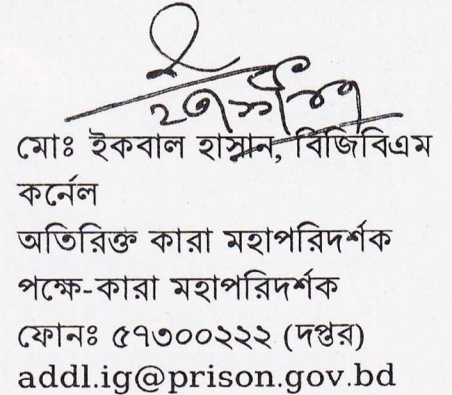 মোঃ ইকবাল হাসান, বিজিবিএম
কর্নেল
অতিরিক্ত কারা মহাপরিদর্শক
পক্ষে-কারা মহাপরিদর্শক
ফোনঃ ৫৭৩০০২২২ (দপ্তর)
addl.ig@prison.gov.bd